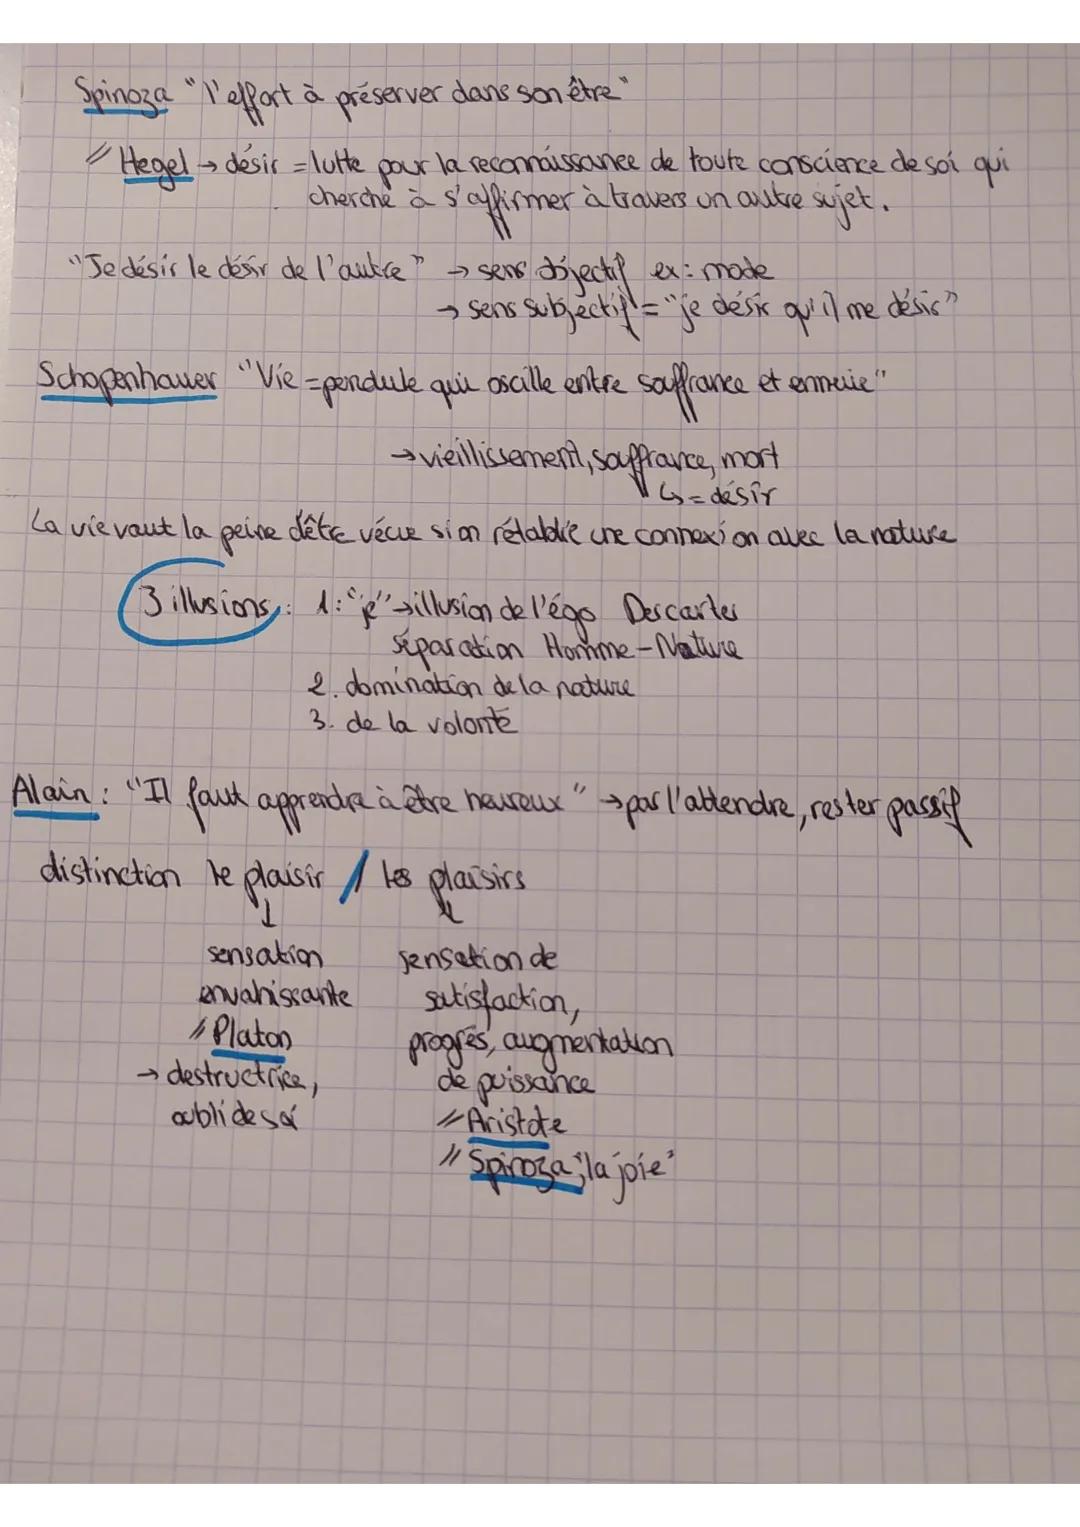 Spinoza "l'effort à préserver dans son être"
// Hegel → désir = lutte pour la reconnaissance de toute conscience de soi qui
cherche à s'affirmer à travers un autre sujet.
"Je désir le désir de l'autre" → sens objectif ex: mode
→ sens subjectif = "je désir qu'il me désir"
Schopenhauer "Vie = pendule qui oscille entre souffrance et ennuie"
→ vieillissement, souffrance, mort
↳ = désir
La vie vaut la peine d'être vécue si on rétablie une connexion avec la nature
3 illusions : 1: "je" → illusion de l'égo Descartes
séparation Homme - Nature
2. domination de la nature
3. de la volonté
Alain : "Il faut apprendre à être heureux" → pas l'attendre, rester passif
distinction le plaisir / les plaisirs
↓ ↓
sensation sensation de
envahissante satisfaction,
// Platon progrès, augmentation
→ destructrice, de puissance
oubli de soi // Aristote
// Spinoza "la joie"